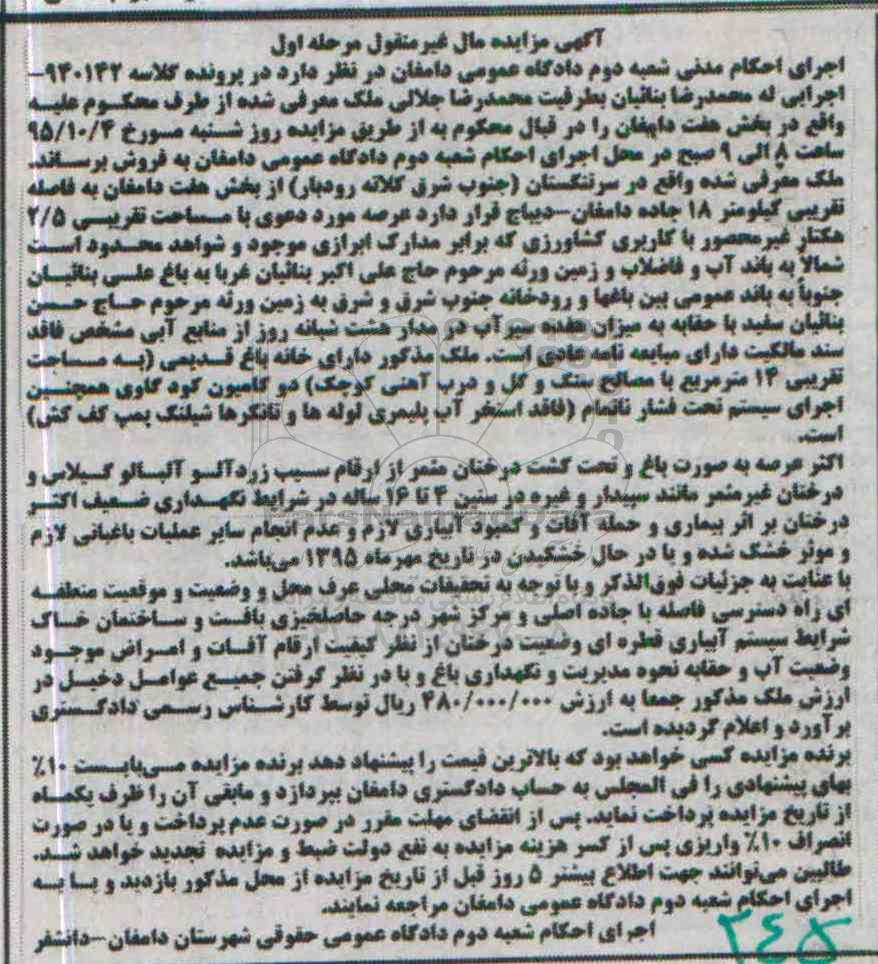 آگهی مزایده مال غیرمنقول مرحله اول
اجرای احکام مدنی شعبه دوم دادگاه عمومی دامغان در نظر دارد در پرونده کلاسه ۹۴۰۱۴۲-
اجرایی له محمدرضا بنائیان بطرفیت محمدرضا جلالی ملک معرفی شده از طرف محکوم علیه
واقع در بخش هفت دامغان را در قبال محکوم به از طریق مزایده روز شنبه مورخ ۹۵/۱۰/۴
ساعت ۸ الی ۹ صبح در محل اجرای احکام شعبه دوم دادگاه عمومی دامغان به فروش برساند.
ملک معرفی شده واقع در سرتنگستان (جنوب شرق کلاته رودبار) از بخش هفت دامغان به فاصله
تقریبی کیلومتر ۱۸ جاده دامغان-دیباج قرار دارد عرصه مورد دعوی با مساحت تقریبی ۲/۵
هکتار غیرمحصور با کاربری کشاورزی که برابر مدارک ابرازی موجود و شواهد محدود است
شمالاً به باند آب و فاضلاب و زمین ورثه مرحوم حاج علی اکبر بنائیان غربا به باغ علی بنائیان
جنوباً به باند عمومی بین باغها و رودخانه جنوب شرق و شرق به زمین ورثه مرحوم حاج حسن
بنائیان سفید با حقابه به میزان هفده سیر آب در مدار هشت شبانه روز از منابع آبی مشخص فاقد
سند مالکیت دارای مبایعه نامه عادی است. ملک مذکور دارای خانه باغ قدیمی (به مساحت
تقریبی ۱۴ مترمربع با مصالح سنگ و گل و درب آهنی کوچک) دو کامیون کود گاوی همچنین
اجرای سیستم تحت فشار ناتمام (فاقد استخر آب پلیمری لوله ها و تانگرها شیلنگ پمپ کف کش)
است.
اکثر عرصه به صورت باغ و تحت کشت درختان مثمر از ارقام سیب زردآلو آلبالو گیلاس و
درختان غیرمثمر مانند سپیدار و غیره در سنین ۴ تا ۱۶ ساله در شرایط نگهداری ضعیف اکثر
درختان بر اثر بیماری و حمله آفات و کمبود آبیاری لازم و عدم انجام سایر عملیات باغبانی لازم
و موثر خشک شده و یا در حال خشکیدن در تاریخ مهرماه ۱۳۹۵ می‌باشد.
با عنایت به جزئیات فوق‌الذکر و با توجه به تحقیقات محلی عرف محل و وضعیت و موقعیت منطقه
ای راه دسترسی فاصله با جاده اصلی و مرکز شهر درجه حاصلخیزی بافت و ساختمان خاک
شرایط سیستم آبیاری قطره ای وضعیت درختان از نظر کیفیت ارقام آفات و امراض موجود
وضعیت آب و حقابه نحوه مدیریت و نگهداری باغ و با در نظر گرفتن جمیع عوامل دخیل در
ارزش ملک مذکور جمعا به ارزش ۴۸۰/۰۰۰/۰۰۰ ریال توسط کارشناس رسمی دادگستری
برآورد و اعلام گردیده است.
برنده مزایده کسی خواهد بود که بالاترین قیمت را پیشنهاد دهد برنده مزایده می‌بایست ۱۰٪
بهای پیشنهادی را فی المجلس به حساب دادگستری دامغان بپردازد و مابقی آن را ظرف یکماه
از تاریخ مزایده پرداخت نماید. پس از انقضای مهلت مقرر در صورت عدم پرداخت و یا در صورت
انصراف ۱۰٪ واریزی پس از کسر هزینه مزایده به نفع دولت ضبط و مزایده تجدید خواهد شد.
طالبین می‌توانند جهت اطلاع بیشتر ۵ روز قبل از تاریخ مزایده از محل مذکور بازدید و یا به
اجرای احکام شعبه دوم دادگاه عمومی دامغان مراجعه نمایند.
اجرای احکام شعبه دوم دادگاه عمومی حقوقی شهرستان دامغان-دانشفر
۲۴۵